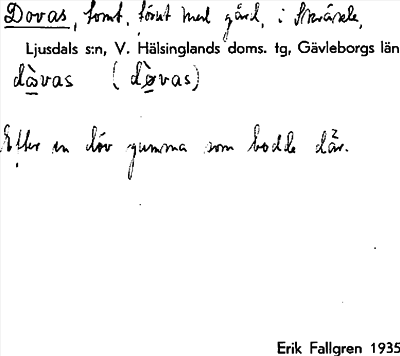 Dovas, tomt, förut med gård, i
Ljusdals s:n, V. Hälsinglands doms. tg, Gävleborgs län
dåvas (døvas)
Efter en döv gumma som bodde där.
Erik Fallgren 1935